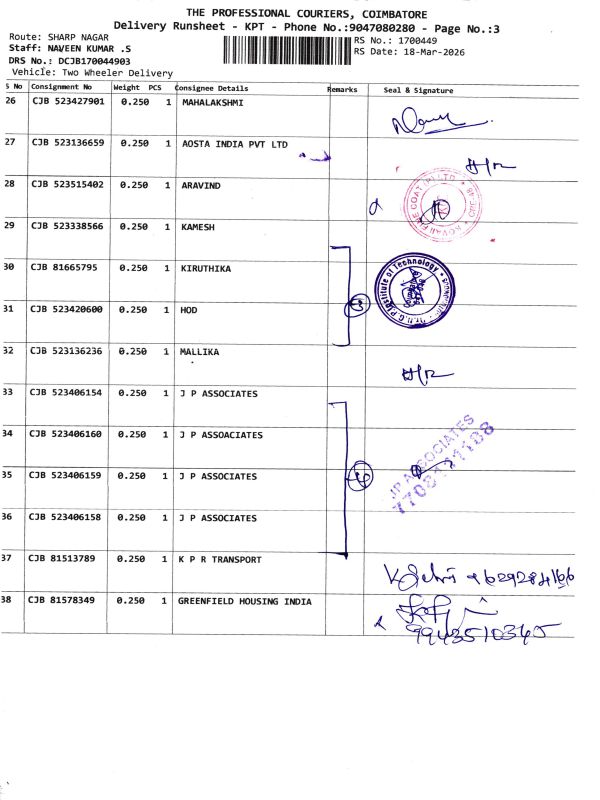 THE PROFESSIONAL COURIERS, COIMBATORE
Delivery Runsheet - KPT - Phone No.:9047080280 - Page No.:3
Route: SHARP NAGAR
RS No.: 1700449
Staff: NAVEEN KUMAR .S
RS Date: 18-Mar-2026
DRS No.: DCJB170044903
Vehicle: Two Wheeler Delivery
S No Consignment No Weight PCS Consignee Details Remarks Seal & Signature
26 CJB 523427901 0.250 1 MAHALAKSHMI
27 CJB 523136659 0.250 1 AOSTA INDIA PVT LTD
H/R
28 CJB 523515402 0.250 1 ARAVIND
29 CJB 523338566 0.250 1 KAMESH
30 CJB 81665795 0.250 1 KIRUTHIKA
Institute of Technology
31 CJB 523420600 0.250 1 HOD
32 CJB 523136236 0.250 1 MALLIKA
H/R
33 CJB 523406154 0.250 1 J P ASSOCIATES
34 CJB 523406160 0.250 1 J P ASSOACIATES
JP ASSOCIATES
35 CJB 523406159 0.250 1 J P ASSOCIATES
36 CJB 523406158 0.250 1 J P ASSOCIATES
37 CJB 81513789 0.250 1 K P R TRANSPORT
38 CJB 81578349 0.250 1 GREENFIELD HOUSING INDIA
9943510345